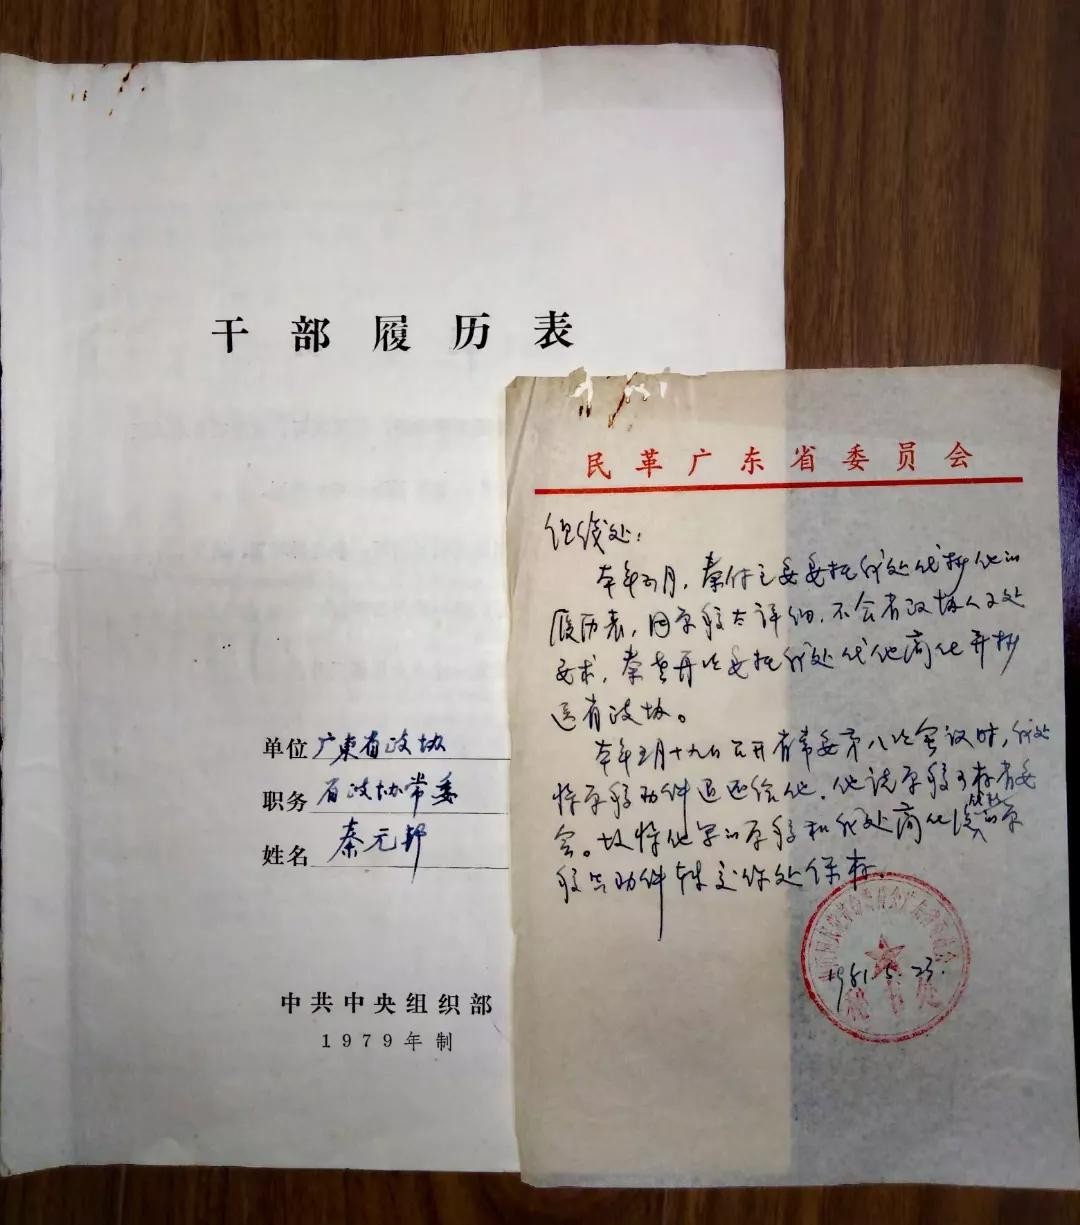 干部履历表
单位 广东省政协
职务 省政协常委
姓名 秦元邦
中共中央组织部
1979年制
民革广东省委员会
组织处：
本年五月，秦付主委委托我处代抄他的
履历表，因原稿太详细，不合省政协人事处
要求，秦老再次委托我处代他简化并抄
送省政协。
本年五月十九日召开省常委第八次会议时，我处
将原稿功件退还给他，他说原稿可存省委
会。故将他写的原稿和我处简化的原
稿共功件转交你处保存。
1981.5.23.
秘书处